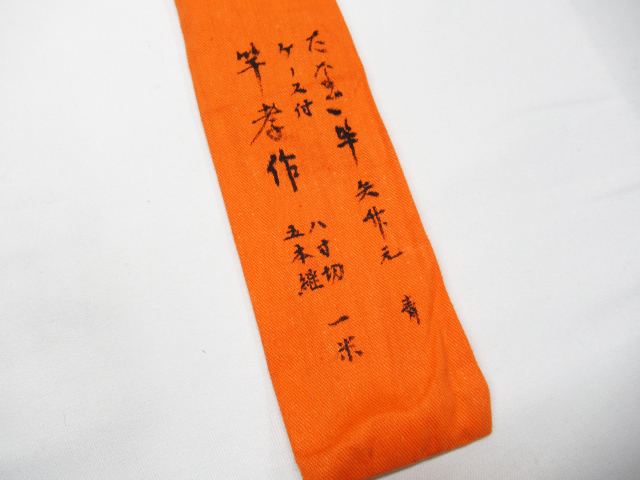 たなご竿 矢竹元 青
ケース付 八寸切 一米
竿孝作 五本継